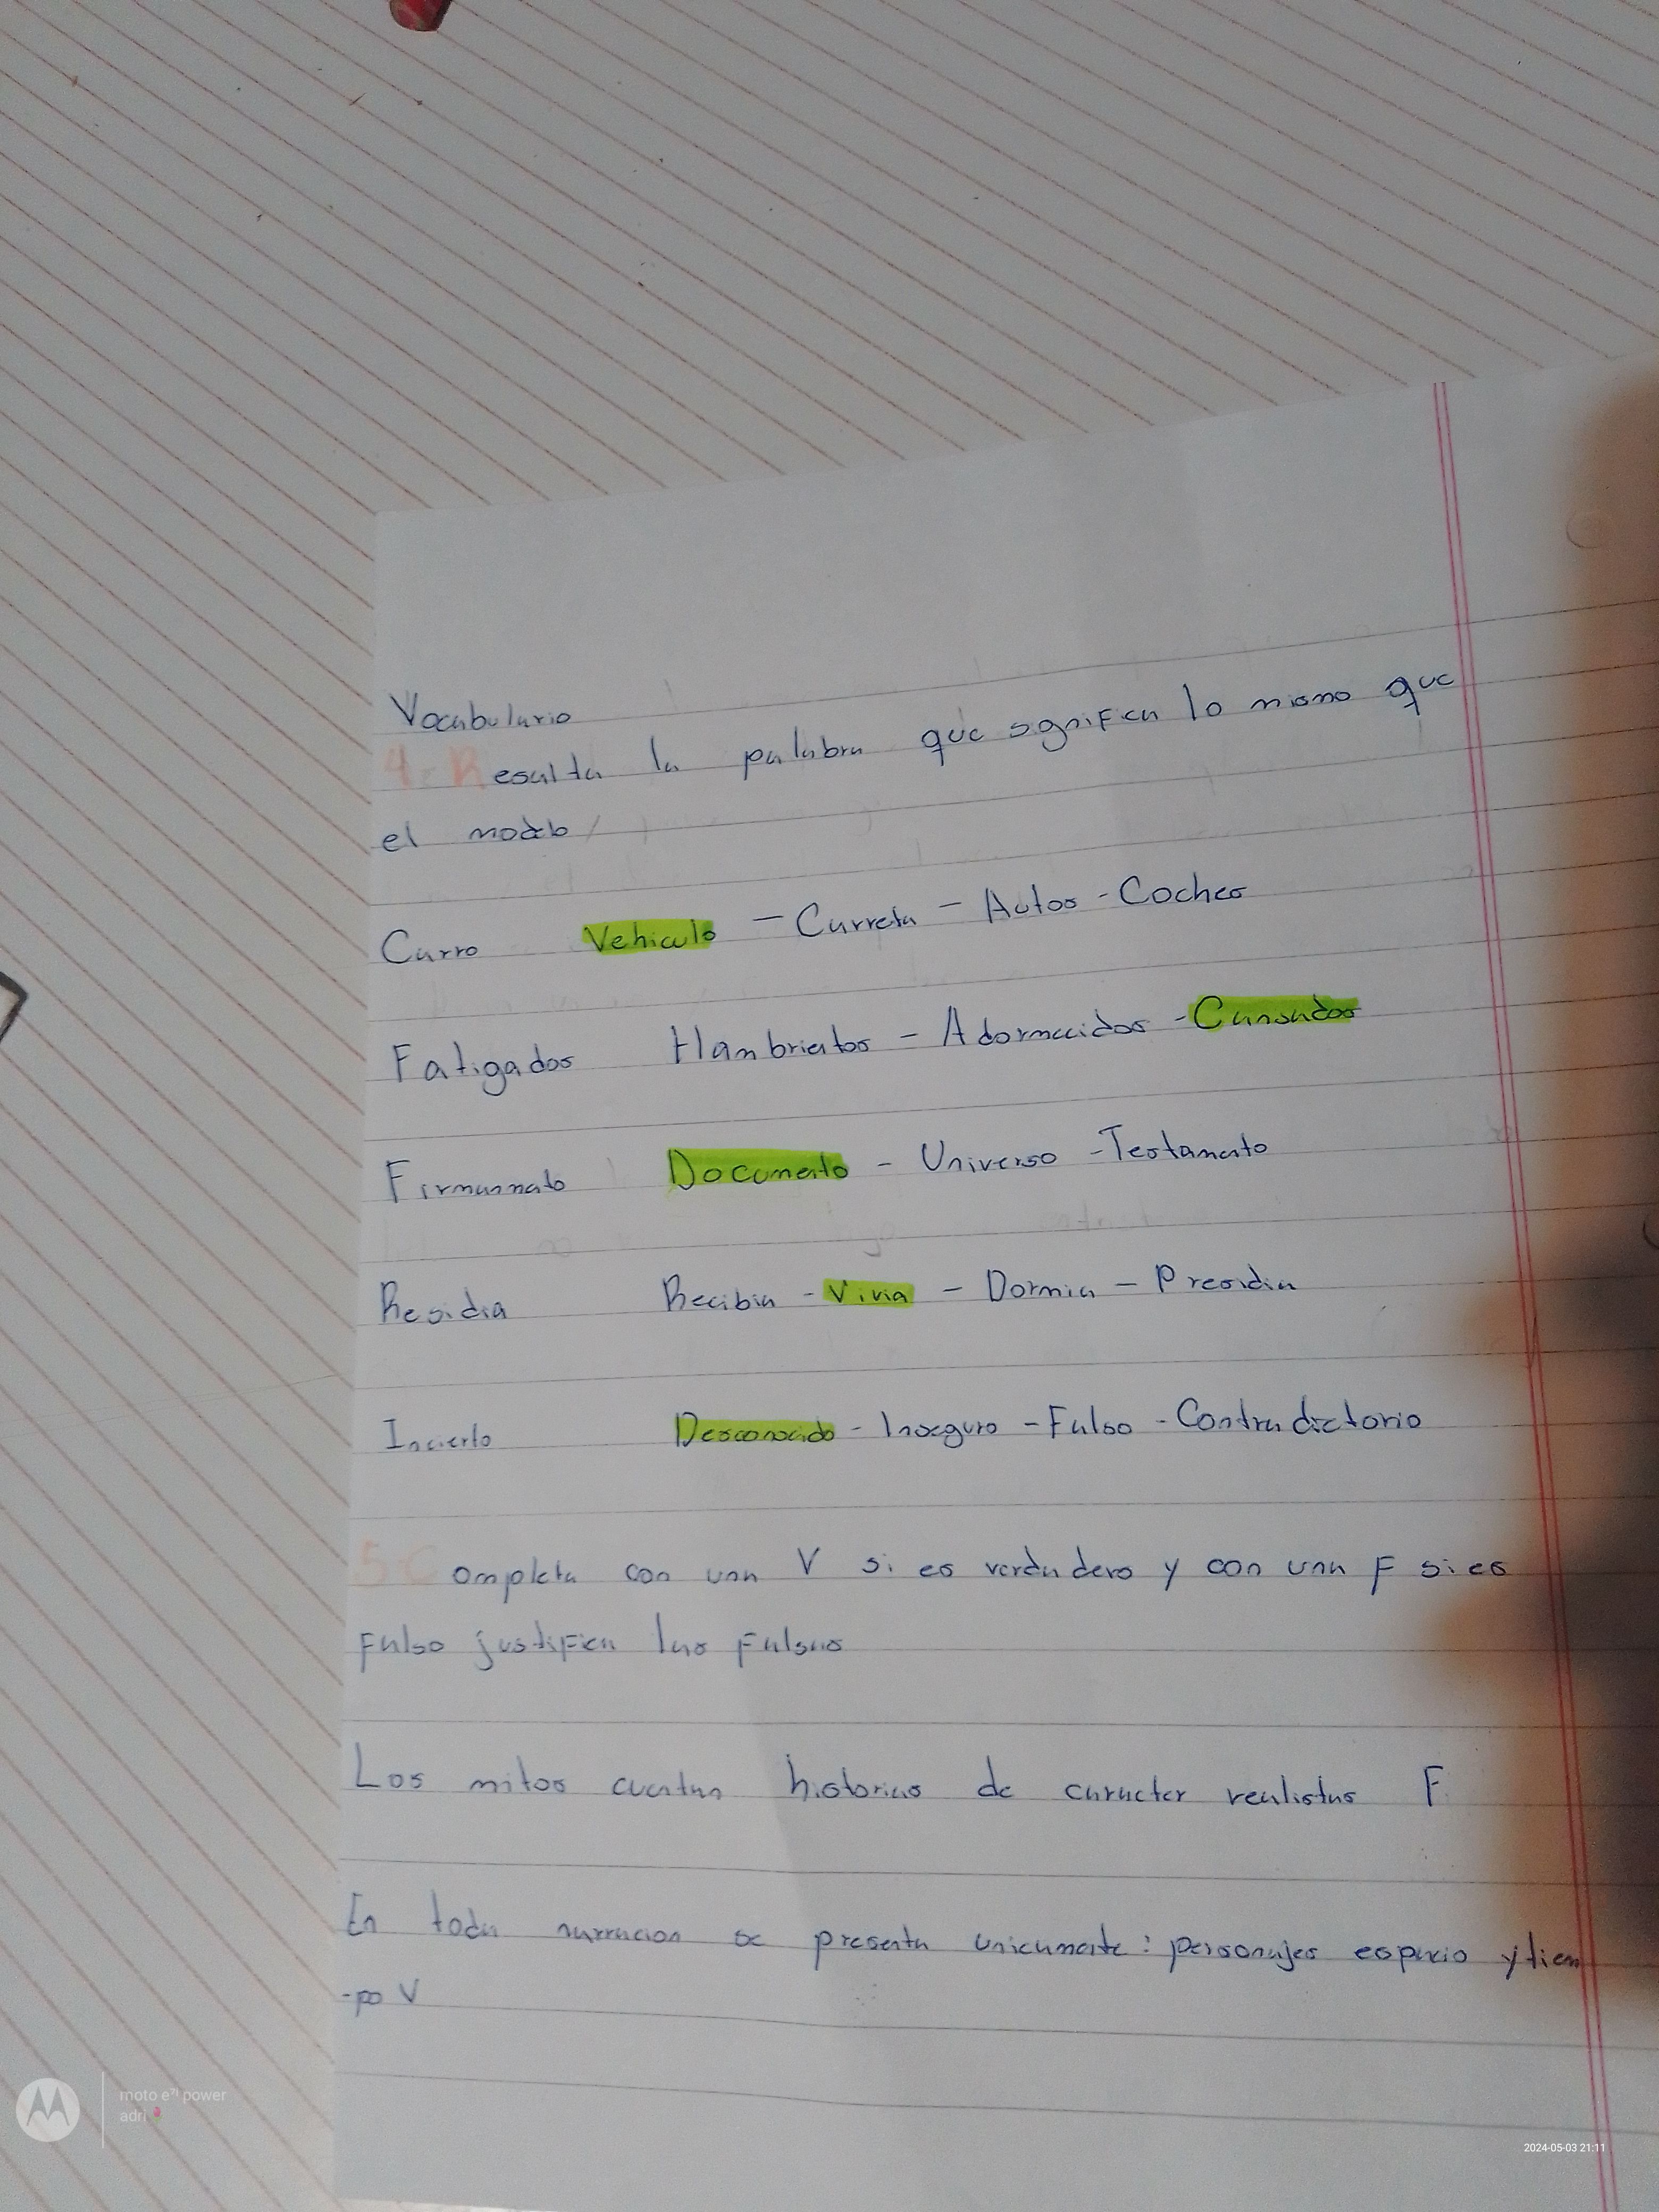 Vocabulario
4. Resalta la palabra que significa lo mismo que
el modelo
Carro Vehiculo - Carreta - Autos - Coches
Fatigados Hambrientos - Adormecidos - Cansados
Firmamnato Documento - Universo - Testamento
Residia Recibia - Vivia - Dormia - Presidia
Incierto Desconocido - Inseguro - Falso - Contradictorio
5. Completa con una V si es verdadero y con una F si es
Falso justifica las Falsas
Los mitos cuentan historias de caracter realistas F
En toda narracion se presenta unicamente: personajes espacio y tiem
-po V
moto e²⁰ power
adri
2024-05-03 21:11